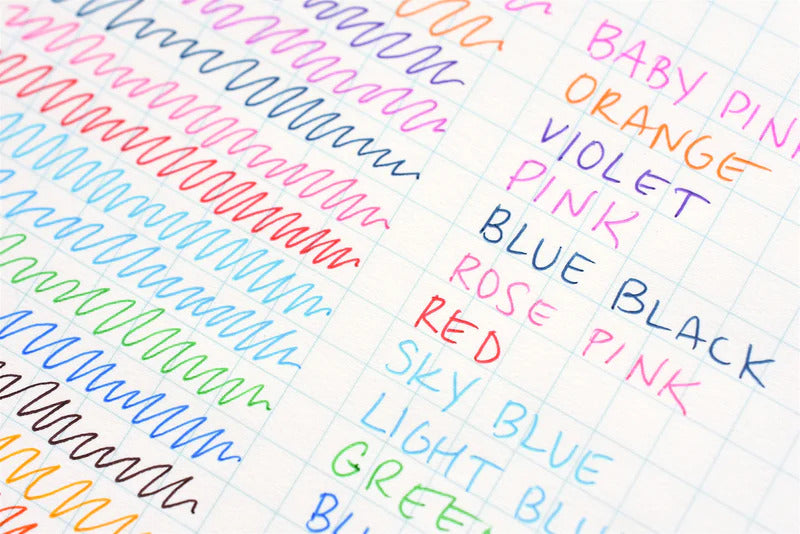 BABY PINK
ORANGE
VIOLET
PINK
BLUE BLACK
ROSE PINK
RED
SKY BLUE
LIGHT BLU
GREEN
BL